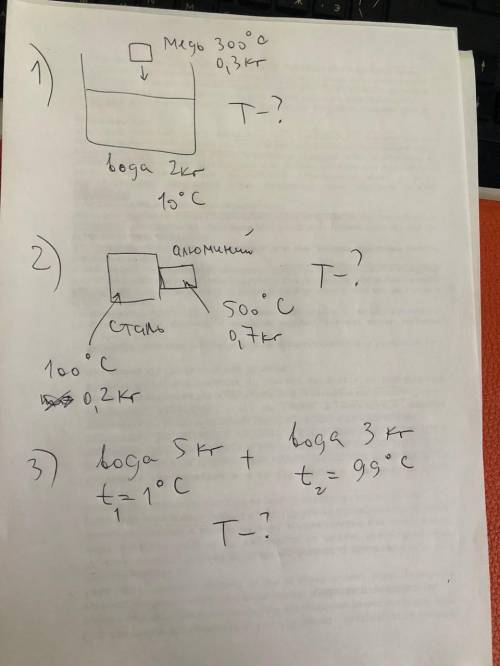 1)
медь 300°C
0,3 кг
T-?
вода 2кг
10°C
2)
алюминий
T-?
500°C
0,7кг
сталь
100°C
0,2 кг
3)
вода 5кг + вода 3 кг
t₁=1°C t₂=99°C
T-?